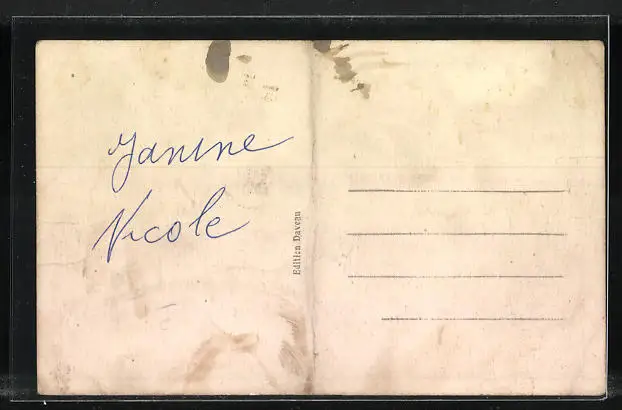 Janine
Nicole
Edition Daveau